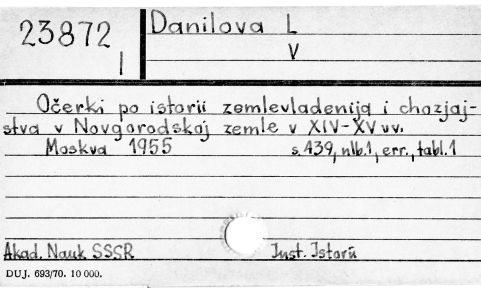 23872
I
Danilova L
V
Očerki po istorii zemlevladenija i chozjaj-
stva v Novgorodskoj zemle v XIV-XV vv.
Moskva 1955 s.439, nlb.1, err., tabl.1
Akad. Nauk SSSR Inst. Istorii
DUJ. 693/70. 10 000.